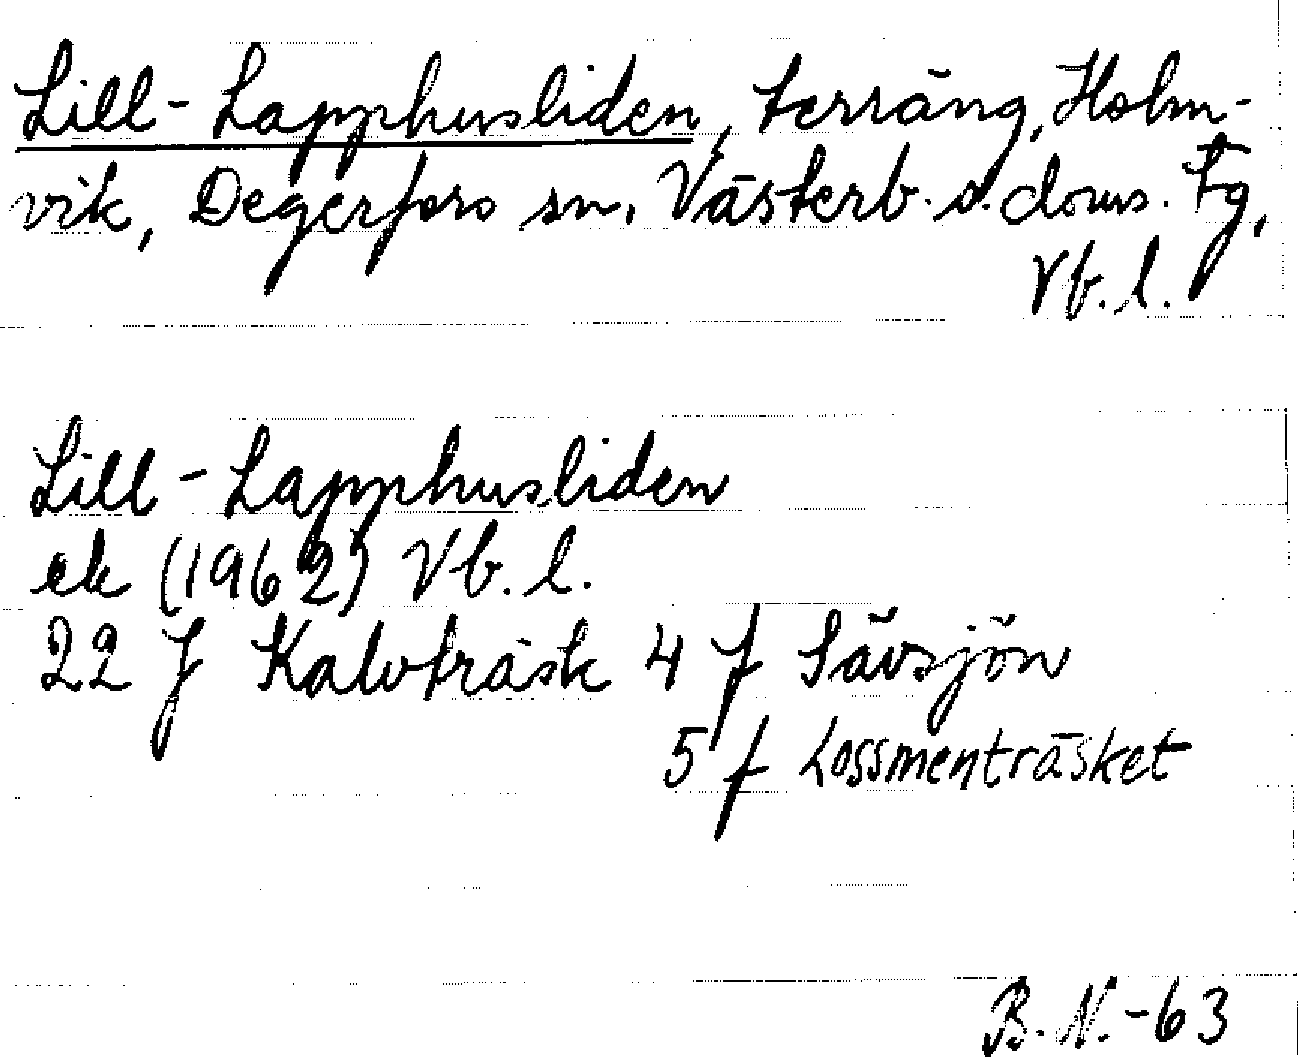 Lill-Lapphusliden, terräng, Holm-
vik, Degerfors sn, Västerb. s. doms. tg,
Vb. l.
Lill-Lapphusliden
ek (1962) Vb. l.
22 J Kalvträsk 4 f Sävsjön
5 f Lossmenträsket
B. N. -63